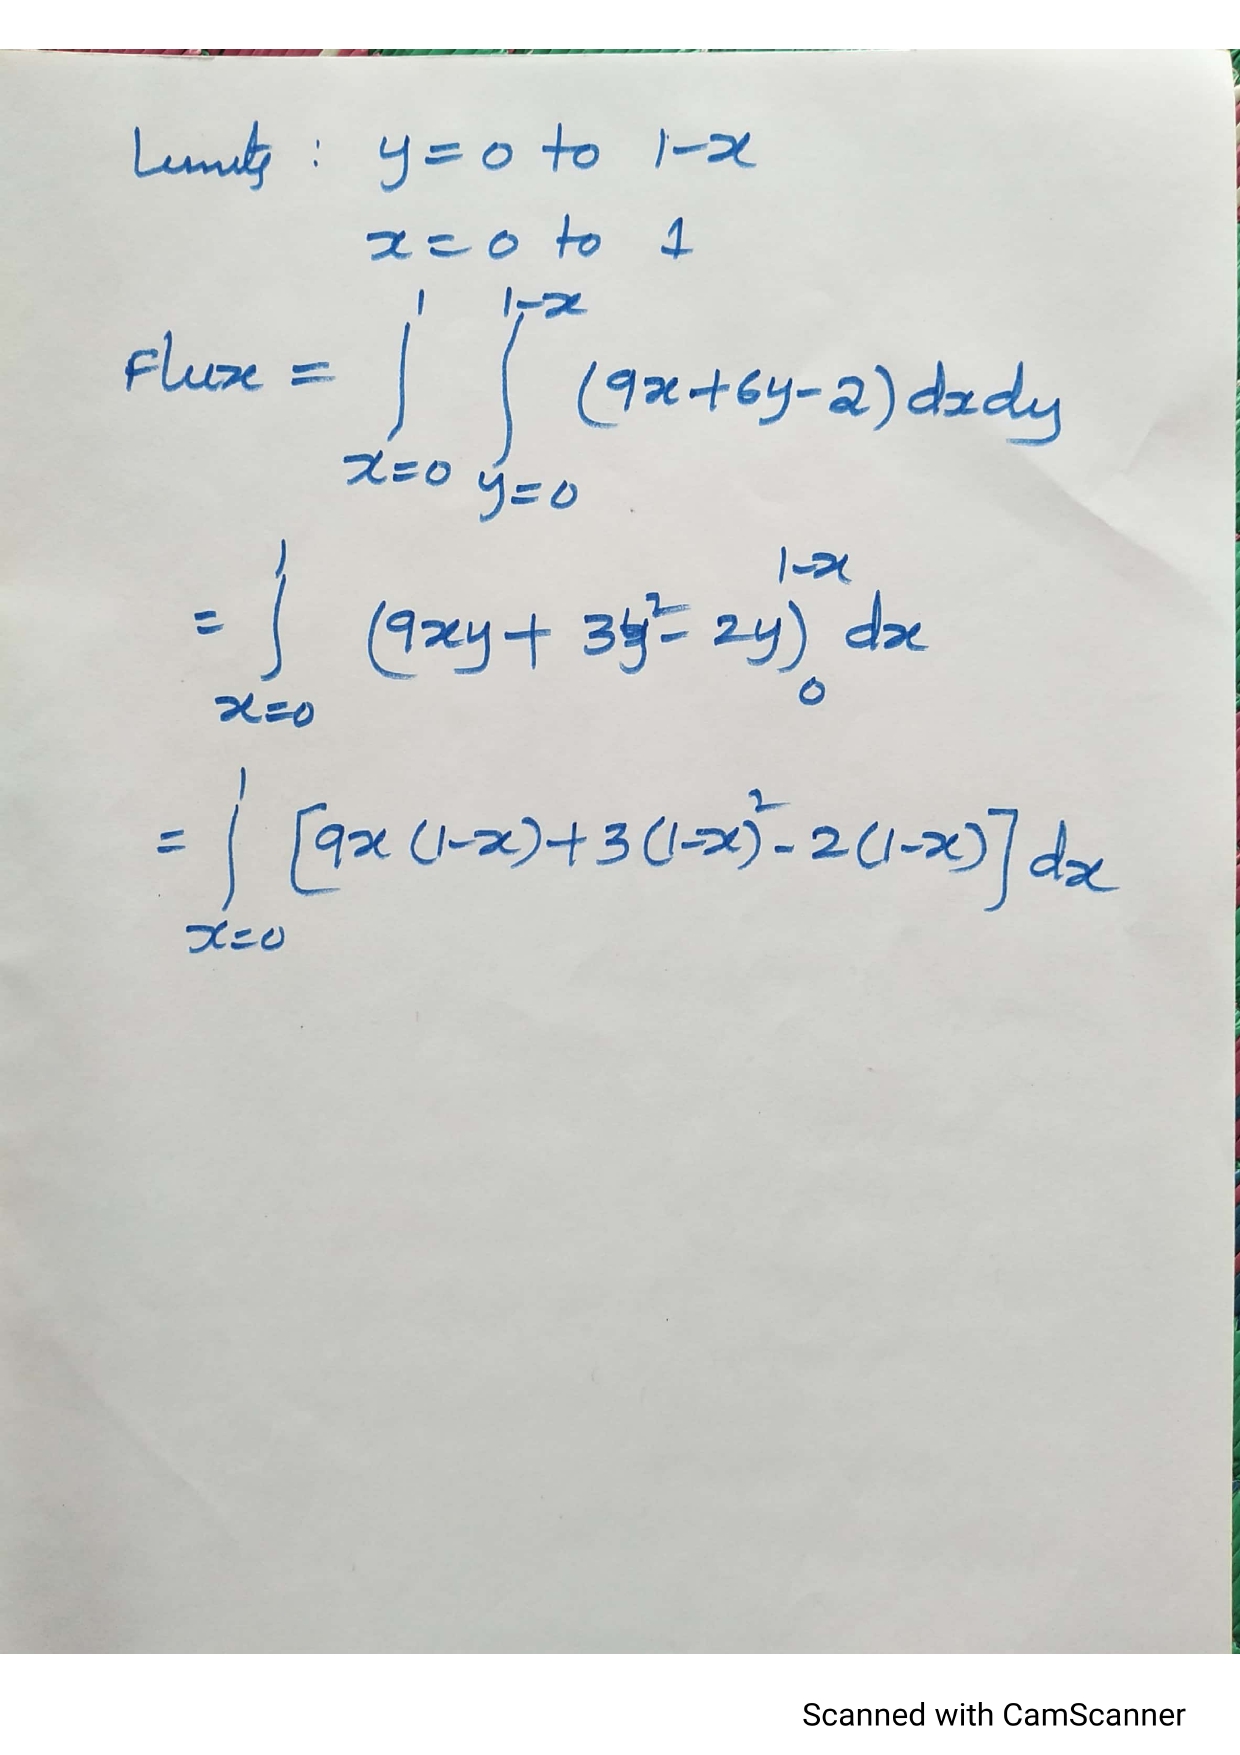 Limits : y = 0 to 1-x
x = 0 to 1
Flux = ∫_{x=0}^{1} ∫_{y=0}^{1-x} (9x+6y-2) dxdy
= ∫_{x=0}^{1} (9xy + 3y² - 2y)_{0}^{1-x} dx
= ∫_{x=0}^{1} [9x (1-x) + 3 (1-x)² - 2 (1-x)] dx
Scanned with CamScanner